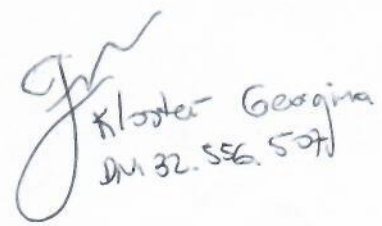 Kloster Georgina
DNI 32.556.507